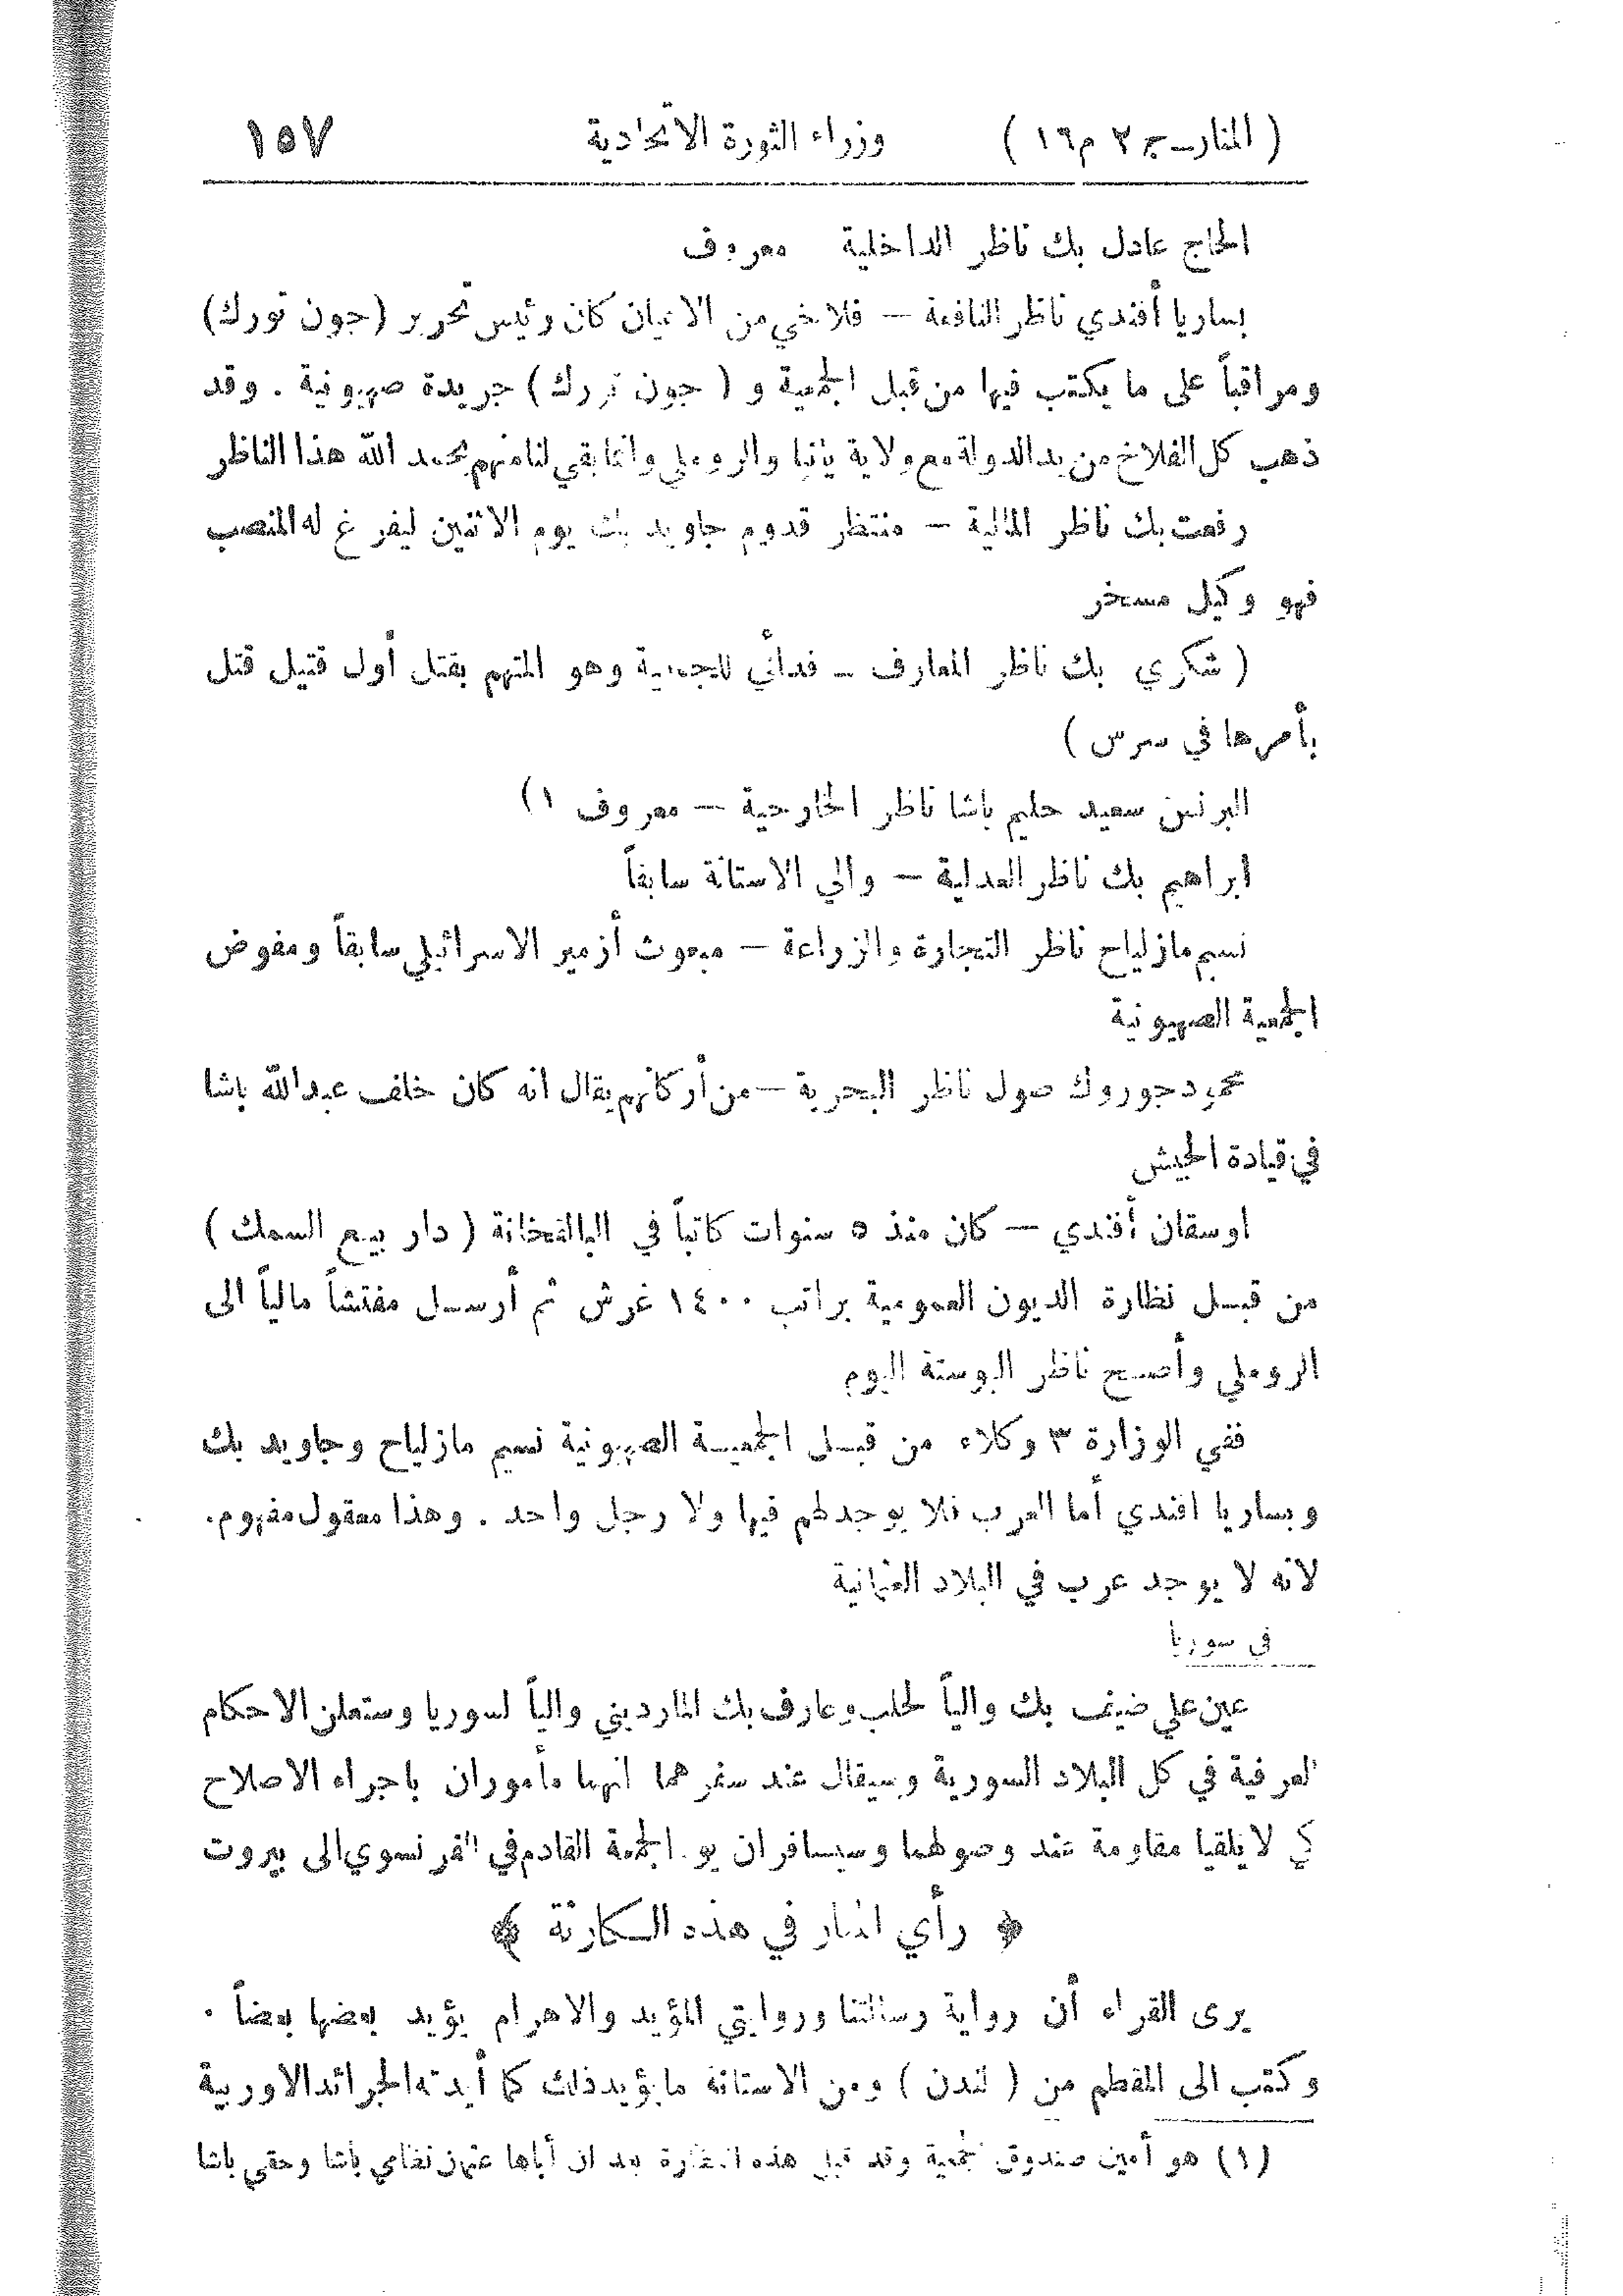 ( المنار ــ ج ٢ م ١٦ ) وزراء الثورة الاتحادية ١٥٧
الحاج عادل بك ناظر الداخلية معروف
بساريا أفندي ناظر النافعة — فلاخي من الاعيان كان رئيس تحرير (جون تورك)
ومراقباً على ما يكتب فيها من قبل الجمعية و ( جون ترك ) جريدة صهيونية . وقد
ذهب كل الفلاخ من يد الدولة مع ولاية يانيا والروملي وانما بقي لنا منهم بحمد الله هذا الناظر
رفعت بك ناظر المالية — منتظر قدوم جاويد بك يوم الاثنين ليفرغ له المنصب
فهو وكيل مسخر
( شكري بك ناظر المعارف ــ فدائي للجمعية وهو المتهم بقتل أول قتيل قتل
بأمرها في سرس )
البرنس سعيد حليم باشا ناظر الخارجية — معروف ١)
ابراهيم بك ناظر العدلية — والي الاستانة سابقاً
نسيم مازلياح ناظر التجارة والزراعة — مبعوث أزمير الاسرائيلي سابقاً ومفوض
الجمعية الصهيونية
محمود جوروك صول ناظر البحرية — من أركانهم يقال انه كان خلف عبد الله باشا
في قيادة الجيش
اوسقان أفندي — كان منذ ٥ سنوات كاتباً في البالقخانة ( دار بيع السمك )
من قبل نظارة الديون العمومية براتب ١٤٠٠ غرش ثم أرسل مفتشاً مالياً الى
الروملي وأصبح ناظر البوستة اليوم
ففي الوزارة ٣ وكلاء من قبل الجمعية الصهيونية نسيم مازلياح وجاويد بك
وبساريا افندي أما العرب فلا يوجد لهم فيها ولا رجل واحد . وهذا معقول مفهوم .
لانه لا يوجد عرب في البلاد العثمانية
في سوريا
عين علي ضيف بك والياً لحلب وعارف بك المارديني والياً لسوريا وستعلن الاحكام
العرفية في كل البلاد السورية وسيقال عند سفرهما انهما مأموران باجراء الاصلاح
كي لا يلقيا مقاومة عند وصولهما وسيسافران يوم الجمعة القادم في الفرنسوي الى بيروت
﴿ رأي المنار في هذه الكارثة ﴾
يرى القراء أن رواية رسالتنا وروايتي المؤيد والاهرام يؤيد بعضها بعضاً .
وكتب الى المقطم من ( لندن ) ومن الاستانة ما يؤيد ذلك كما أيدته الجرائد الاوربية
(١) هو أمين صندوق الجمعية وقد قبل هذه النظارة بعد ان أباها عثمان نظامي باشا وحقي باشا